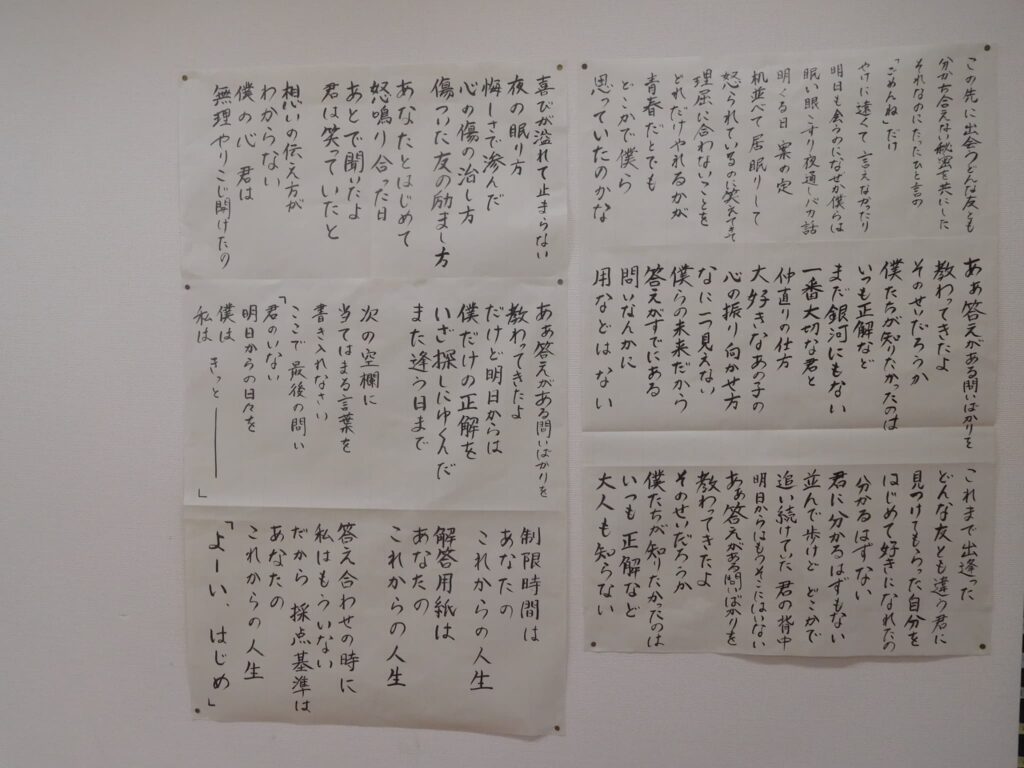 この先に出会うどんな友とも
分かち合えない秘密を共にした
それなのにたったひと言の
「ごめんね」だけ
やけに遠くて 言えなかったり
明日も会うのになぜか僕らは
眠い眼こすり夜通しバカ話
明くる日 案の定
机並べて居眠りして
怒られているのに笑えてきて
理屈に合わないことを
どれだけやれるかが
青春だとでも
どこかで僕ら
思っていたのかな
あぁ答えがある問いばかりを
教わってきたよ
そのせいだろうか
僕たちが知りたかったのは
いつも正解など
まだ銀河にもない
一番大切な君と
仲直りの仕方
大好きなあの子の
心の振り向かせ方
なに一つ見えない
僕らの未来だから
答えがすでにある
問いなんかに
用などはない
これまで出逢った
どんな友とも違う君に
見つけてもらった自分を
はじめて好きになれたの
分かるはずない
君に分かるはずもない
並んで歩けど どこかで
追い続けていた 君の背中
明日からはもうそこにはいない
あぁ答えがある問いばかりを
教わってきたよ
そのせいだろうか
僕たちが知りたかったのは
いつも正解など
大人も知らない
喜びが溢れて止まらない
夜の眠り方
悔しさで滲んだ
心の傷の治し方
傷ついた友の励まし方
あなたとはじめて
怒鳴り合った日
あとで聞いたよ
君は笑っていたと
想いの伝え方が
わからない
僕の心 君は
無理やりこじ開けたの
あぁ答えがある問いばかりを
教わってきたよ
だけど明日からは
僕だけの正解を
いざ探しにゆくんだ
また逢う日まで
次の空欄に
当てはまる言葉を
書き入れなさい
ここで 最後の問い
「君のいない
明日からの日々を
僕は
私は きっと―――」
制限時間は
あなたの
これからの人生
解答用紙は
あなたの
これからの人生
答え合わせの時に
私はもういない
だから 採点基準は
あなたの
これからの人生
「よーい、はじめ」